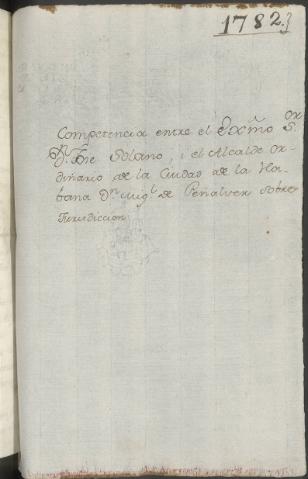 1782.
Competencia entre el Exmõ S.ᵒʳ
Dⁿ. Jose Solano, i el Alcalde or-
dinario de la Ciudad de la Ha-
bana Dⁿ. Mig.ˡ de Peñalver sobre
Jurisdiccion